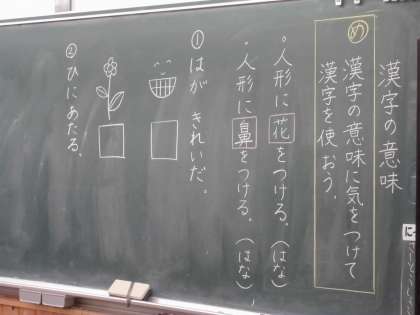 漢字の意味
め 漢字の意味に気をつけて
漢字を使おう。
・人形に花をつける。(はな)
・人形に鼻をつける。(はな)
① はが きれいだ。
② ひにあたる。
に